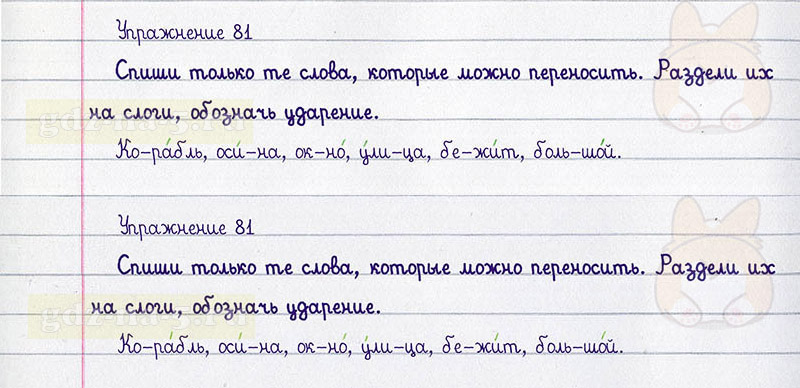 Упражнение 81
Спиши только те слова, которые можно переносить. Раздели их
на слоги, обозначь ударение.
Ко-ра́бль, оси́-на, ок-но́, у́ли-ца, бе-жи́т, боль-шо́й.
Упражнение 81
Спиши только те слова, которые можно переносить. Раздели их
на слоги, обозначь ударение.
Ко-ра́бль, оси́-на, ок-но́, у́ли-ца, бе-жи́т, боль-шо́й.